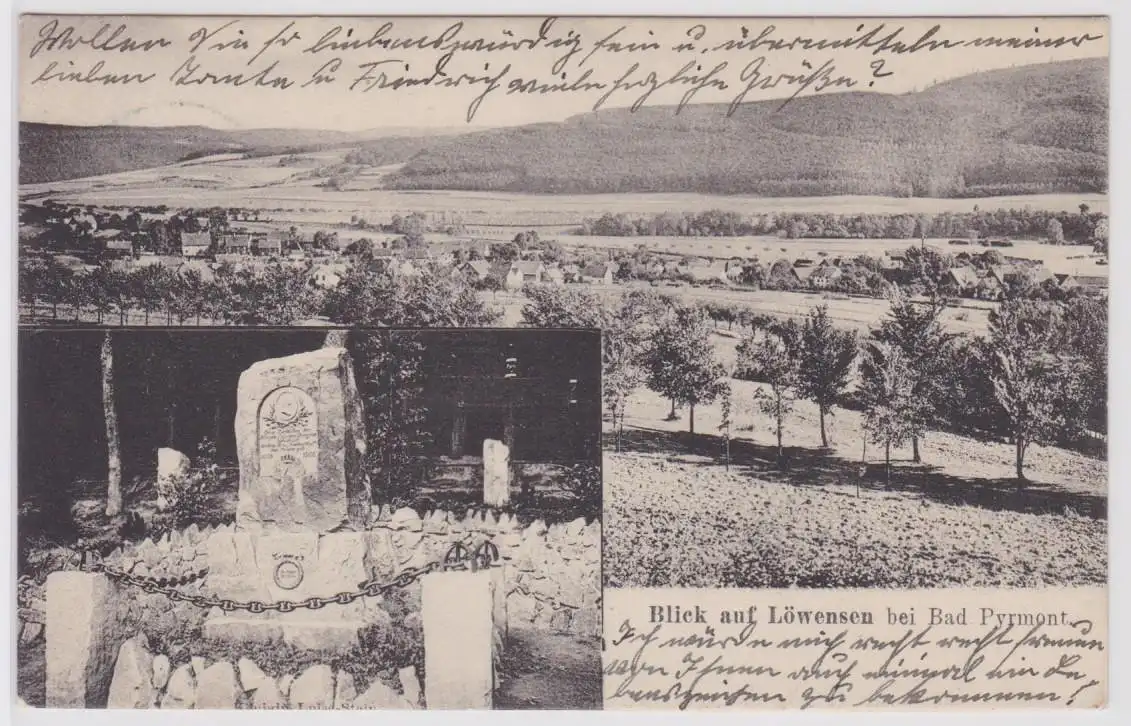 Wollen Sie so liebenswürdig sein u. übermitteln meiner
lieben Tante u Friedrich viele herzliche Grüße?
Königin Luise-Stein
Blick auf Löwensen bei Bad Pyrmont.
Ich würde mich recht recht freuen
von Ihnen auch einmal ein Le-
benszeichen zu bekommen!